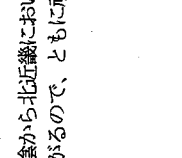 陰から北近畿におい
がるので、ともに